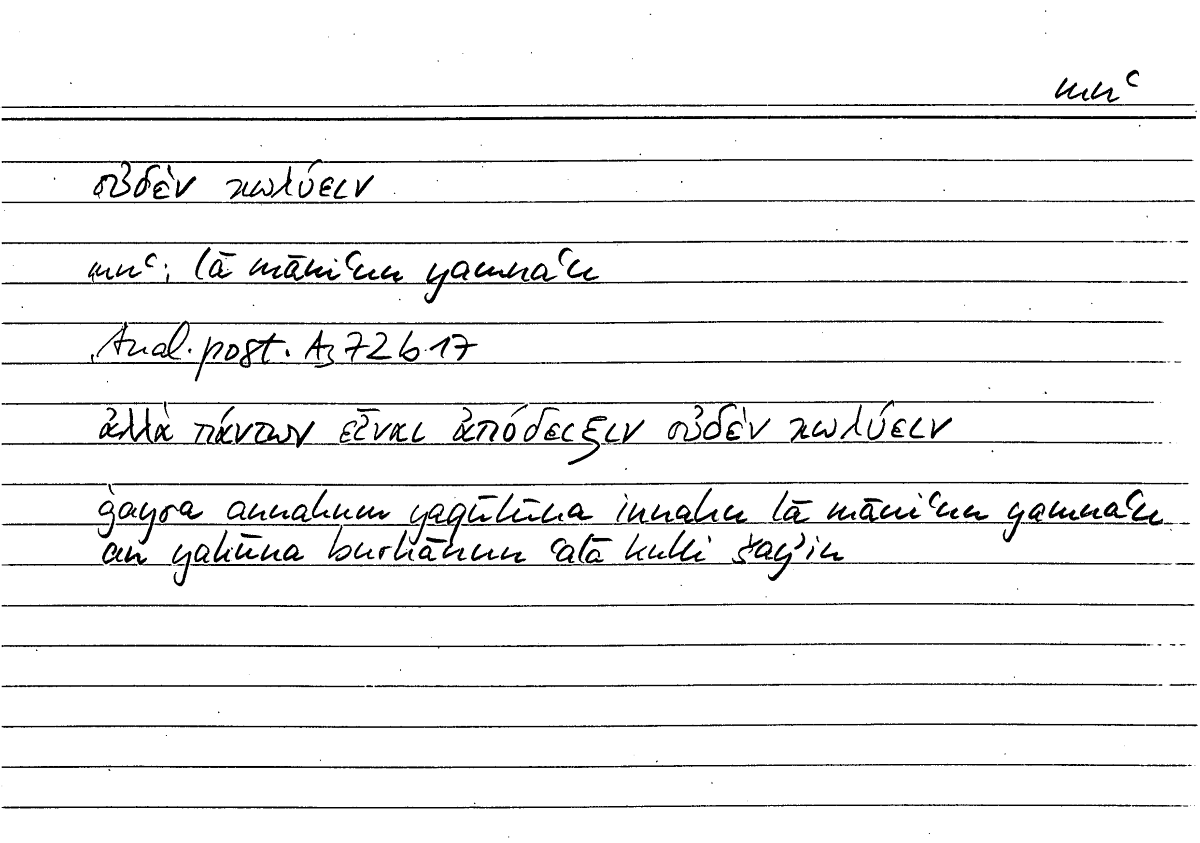 mnʿ
οὐδὲν κωλύειν
mnʿ: lā māniʿun yamnaʿu
Anal. post. A3 72b17
ἀλλὰ πάντων εἶναι ἀπόδειξιν οὐδὲν κωλύειν
ġayra annahum yaqūlūna innahu lā māniʿun yamnaʿu
an yakūna burhānun ʿalā kulli šayʾin